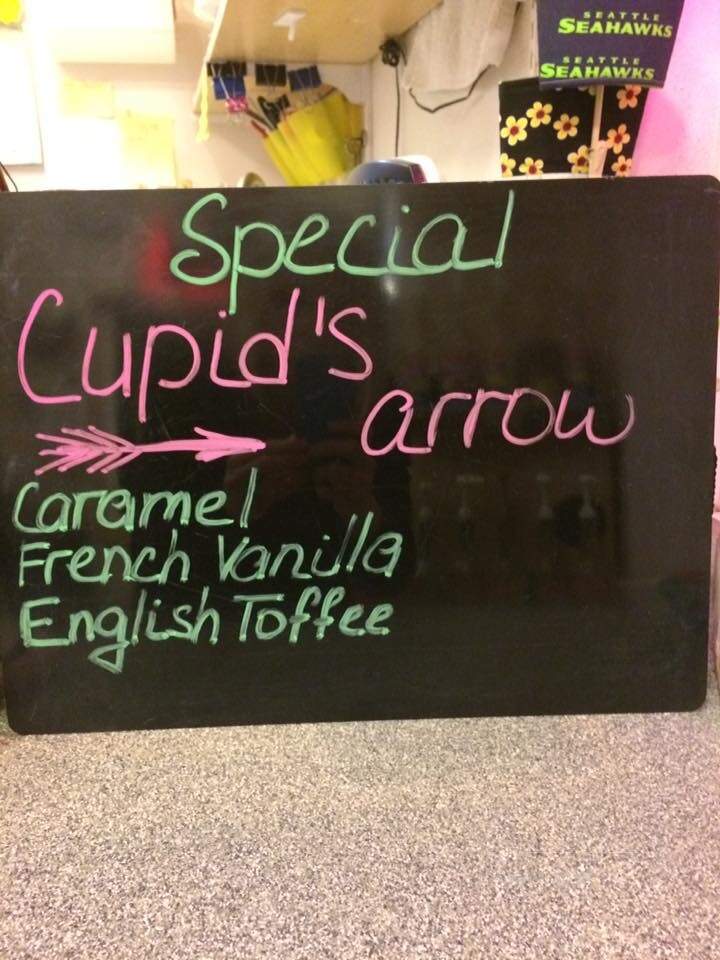 SEATTLE
SEAHAWKS
SEATTLE
SEAHAWKS
Special
Cupid's
arrow
Caramel
French Vanilla
English Toffee